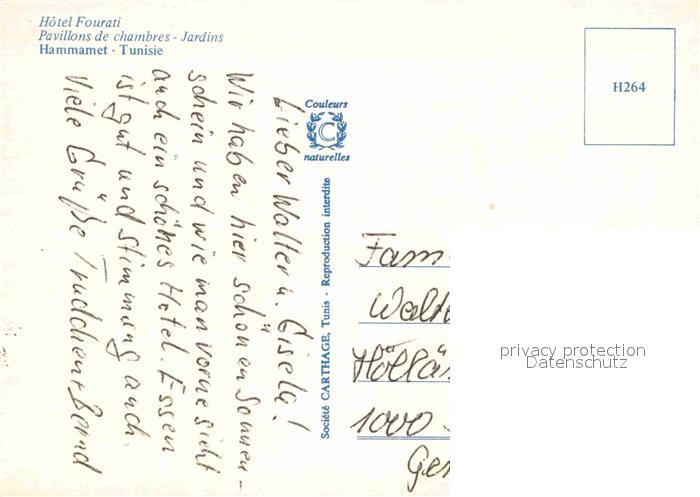 Hôtel Fourati
Pavillons de chambres - Jardins
Hammamet - Tunisie
H264
Couleurs
C
naturelles
Société CARTHAGE, Tunis - Reproduction interdite
Lieber Walter u. Gisela!
Wir haben hier schönen Sonnen-
schein und wie man vorne sieht
auch ein schönes Hotel. Essen
ist gut und Stimmung auch.
Viele Grüße Trudchen + Bernd
Fam
Walt
Höllä
1000
Ger
privacy protection
Datenschutz